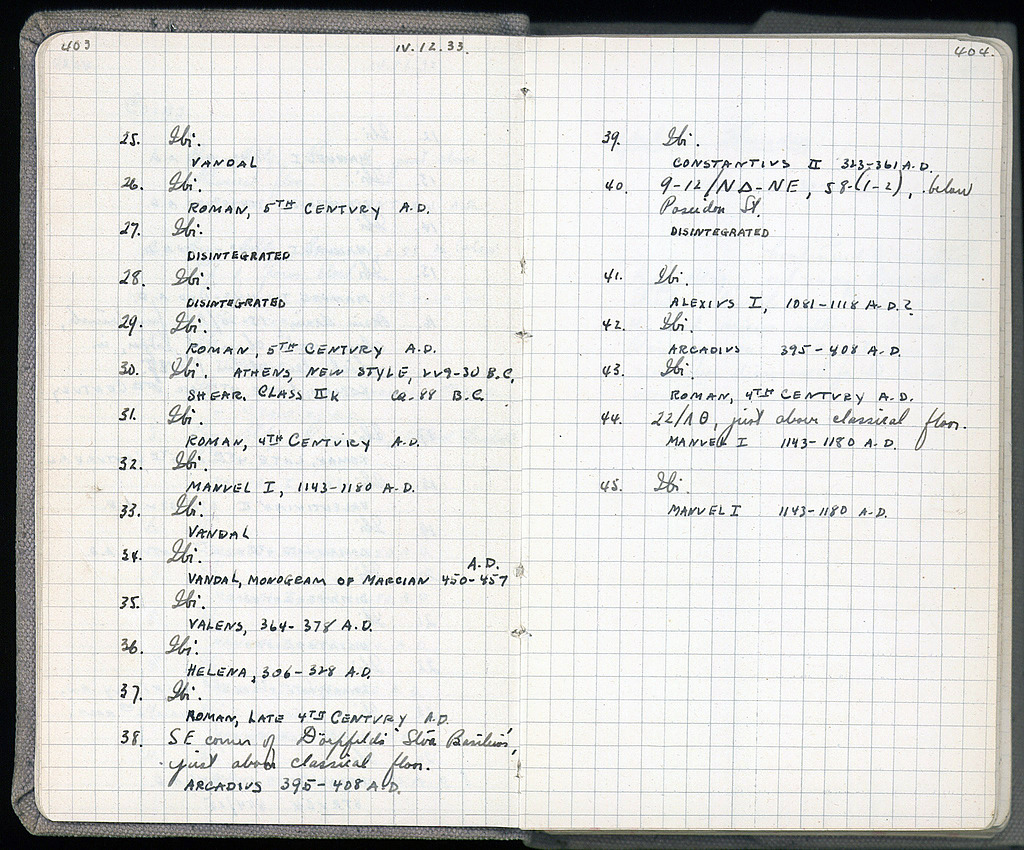 403
IV.12.33.
25. Ibi.
VANDAL
26. Ibi.
ROMAN, 5TH CENTVRY A.D.
27. Ibi.
DISINTEGRATED
28. Ibi.
DISINTEGRATED
29. Ibi.
ROMAN, 5TH CENTVRY A.D.
30. Ibi. ATHENS, NEW STYLE, 229-30 B.C.
SHEAR, CLASS II K ca. 88 B.C.
31. Ibi.
ROMAN, 4TH CENTVRY A.D.
32. Ibi.
MANVEL I, 1143-1180 A.D.
33. Ibi.
VANDAL
34. Ibi.
A.D.
VANDAL, MONOGRAM OF MARCIAN 450-457
35. Ibi.
VALENS, 364-378 A.D.
36. Ibi.
HELENA, 306-328 A.D.
37. Ibi.
ROMAN, LATE 4TH CENTVRY A.D.
38. SE corner of Dörpfeld's 'Stoa Basileios',
just above classical floor.
ARCADIVS 395-408 A.D.
404.
39. Ibi.
CONSTANTIVS II 323-361 A.D.
40. 9-12/ΝΔ-ΝΕ, 58-(1-2), below
Poseidon St.
DISINTEGRATED
41. Ibi.
ALEXIVS I, 1081-1118 A.D.?
42. Ibi.
ARCADIVS 395-408 A.D.
43. Ibi.
ROMAN, 4TH CENTVRY A.D.
44. 22/ΛΘ, just above classical floor.
MANVEL I 1143-1180 A.D.
45. Ibi.
MANVEL I 1143-1180 A.D.